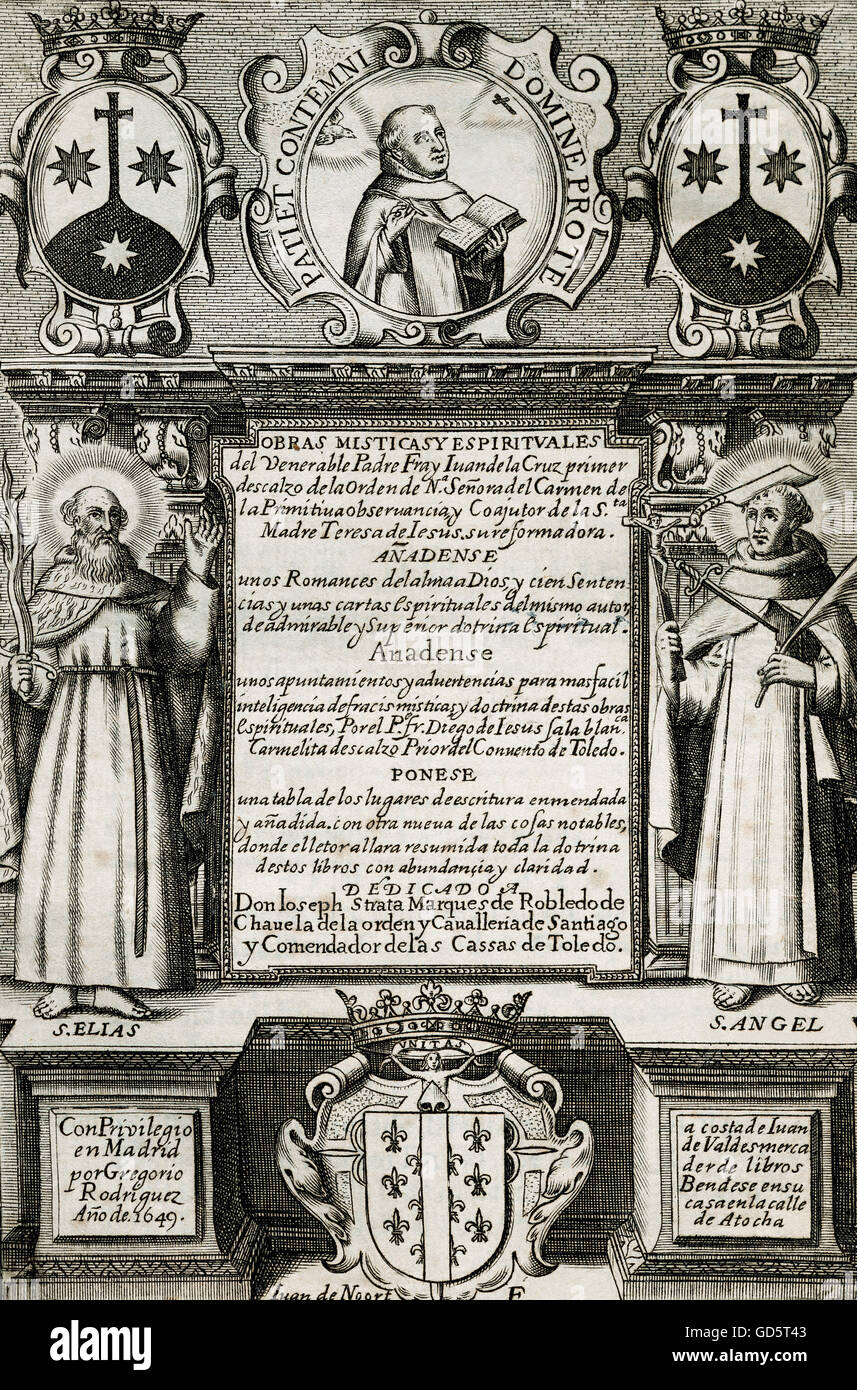 PATI ET CONTEMNI
DOMINE PRO TE
OBRAS MISTICAS Y ESPIRITVALES
del Venerable Padre Fray Iuan de la Cruz primer
descalzo de la Orden de Nª. Señora del Carmen de
la Primitiua obseruancia, y Coajutor de la S.ta
Madre Teresa de Iesus. su reformadora.
AÑADENSE
unos Romances del alma a Dios y cien Senten
cias y unas cartas Espirituales del mismo autor
de admirable y Superior dotrina Espiritual.
Anadense
unos apuntamientos y aduertencias para mas facil
inteligencia de fracis misticas, y doctrina destas obras
Espirituales, Por el Pe. fr. Diego de Iesus sala blanca
Carmelita descalzo Prior del Conuento de Toledo.
PONESE
una tabla de los lugares de escritura enmendada
y añadida. con otra nueva de las cosas notables,
donde el letor allara resumida toda la dotrina
destos libros con abundançia y claridad.
DEDICADO A
Don Ioseph Strata Marques de Robledo de
Chauela de la orden y Cauallería de Santiago
y Comendador de las Cassas de Toledo.
S. ELIAS
S. ANGEL
VNITAS
Con Privilegio
en Madrid
por Gregorio
Rodriguez
Año de. 1649.
a costa de Iuan
de Valdes merca
der de libros
Bendese en su
casa en la calle
de Atocha
Iuan de Noort F
alamy
Image ID: GD5T43
www.alamy.com